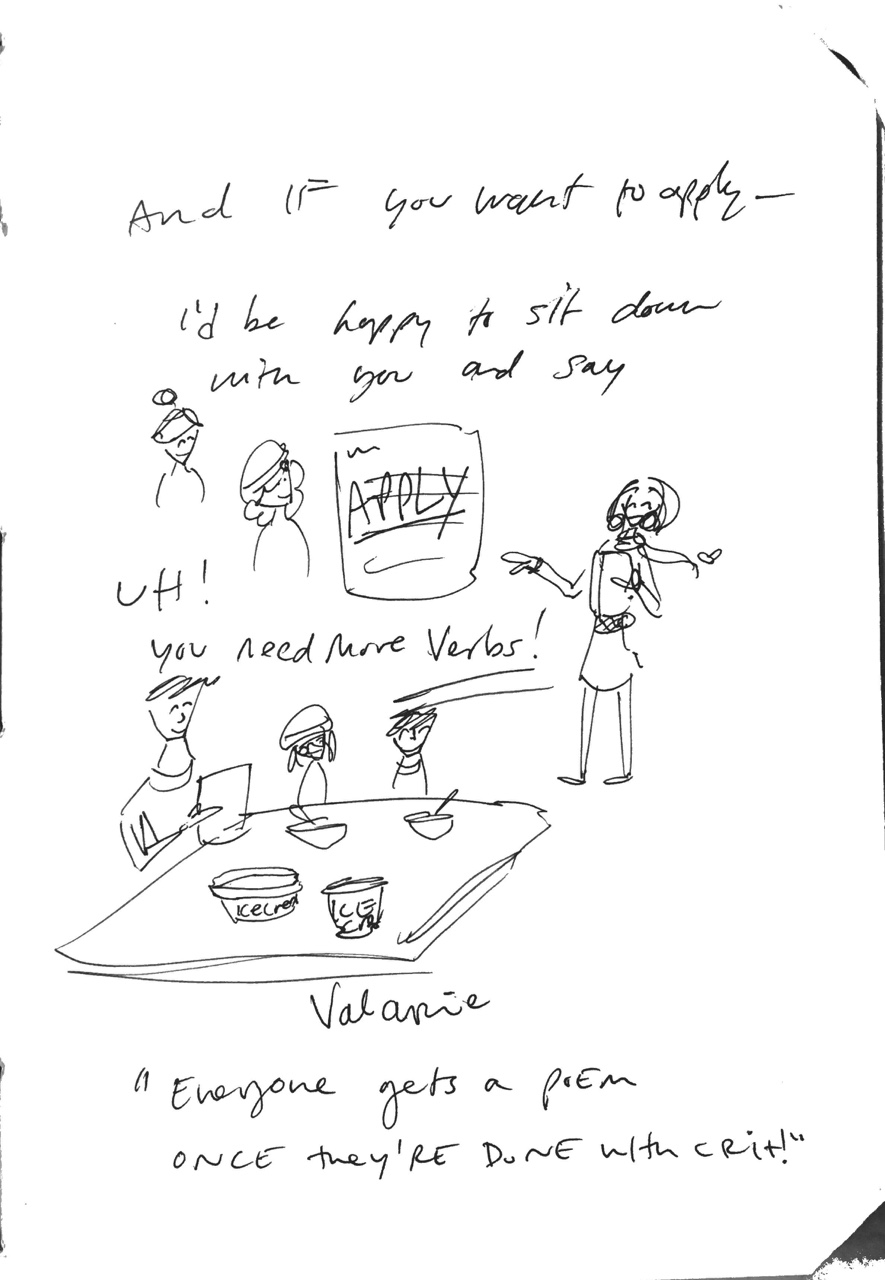 And IF you want to apply—
I'd be happy to sit down
with you and say
APPLY
UH!
you need More Verbs!
ICECream
ICE
Cream
Valarie
"Everyone gets a poEm
ONCE they'RE DONE with CRit!"